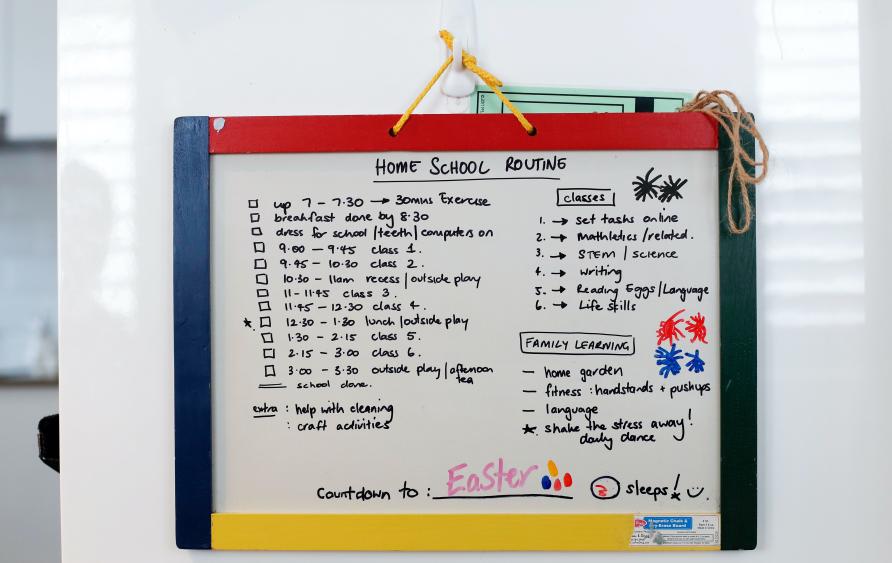 HOME SCHOOL ROUTINE
up 7 - 7.30 → 30mins Exercise
breakfast done by 8.30
dress for school / teeth / computers on
9.00 - 9.45 class 1.
9.45 - 10.30 class 2.
10.30 - 11am recess / outside play
11 - 11.45 class 3.
11.45 - 12.30 class 4.
* 12.30 - 1.30 lunch / outside play
1.30 - 2.15 class 5.
2.15 - 3.00 class 6.
3.00 - 3.30 outside play / afternoon
tea
school done.
extra : help with cleaning
: craft activities
classes
1. → set tasks online
2. → Mathletics / related.
3. → STEM / science
4. → writing
5. → Reading Eggs / Language
6. → Life skills
FAMILY LEARNING
— home garden
— fitness : handstands + pushups
— language
* shake the stress away!
daily dance
Countdown to : Easter 2 sleeps!
Magnetic Chalk &
Dry-Erase Board